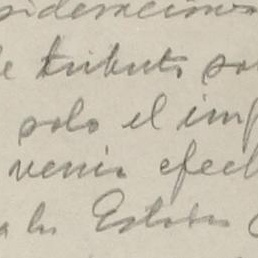 sideraciones
de tributo so
solo el imp
venir efec
a los Estados